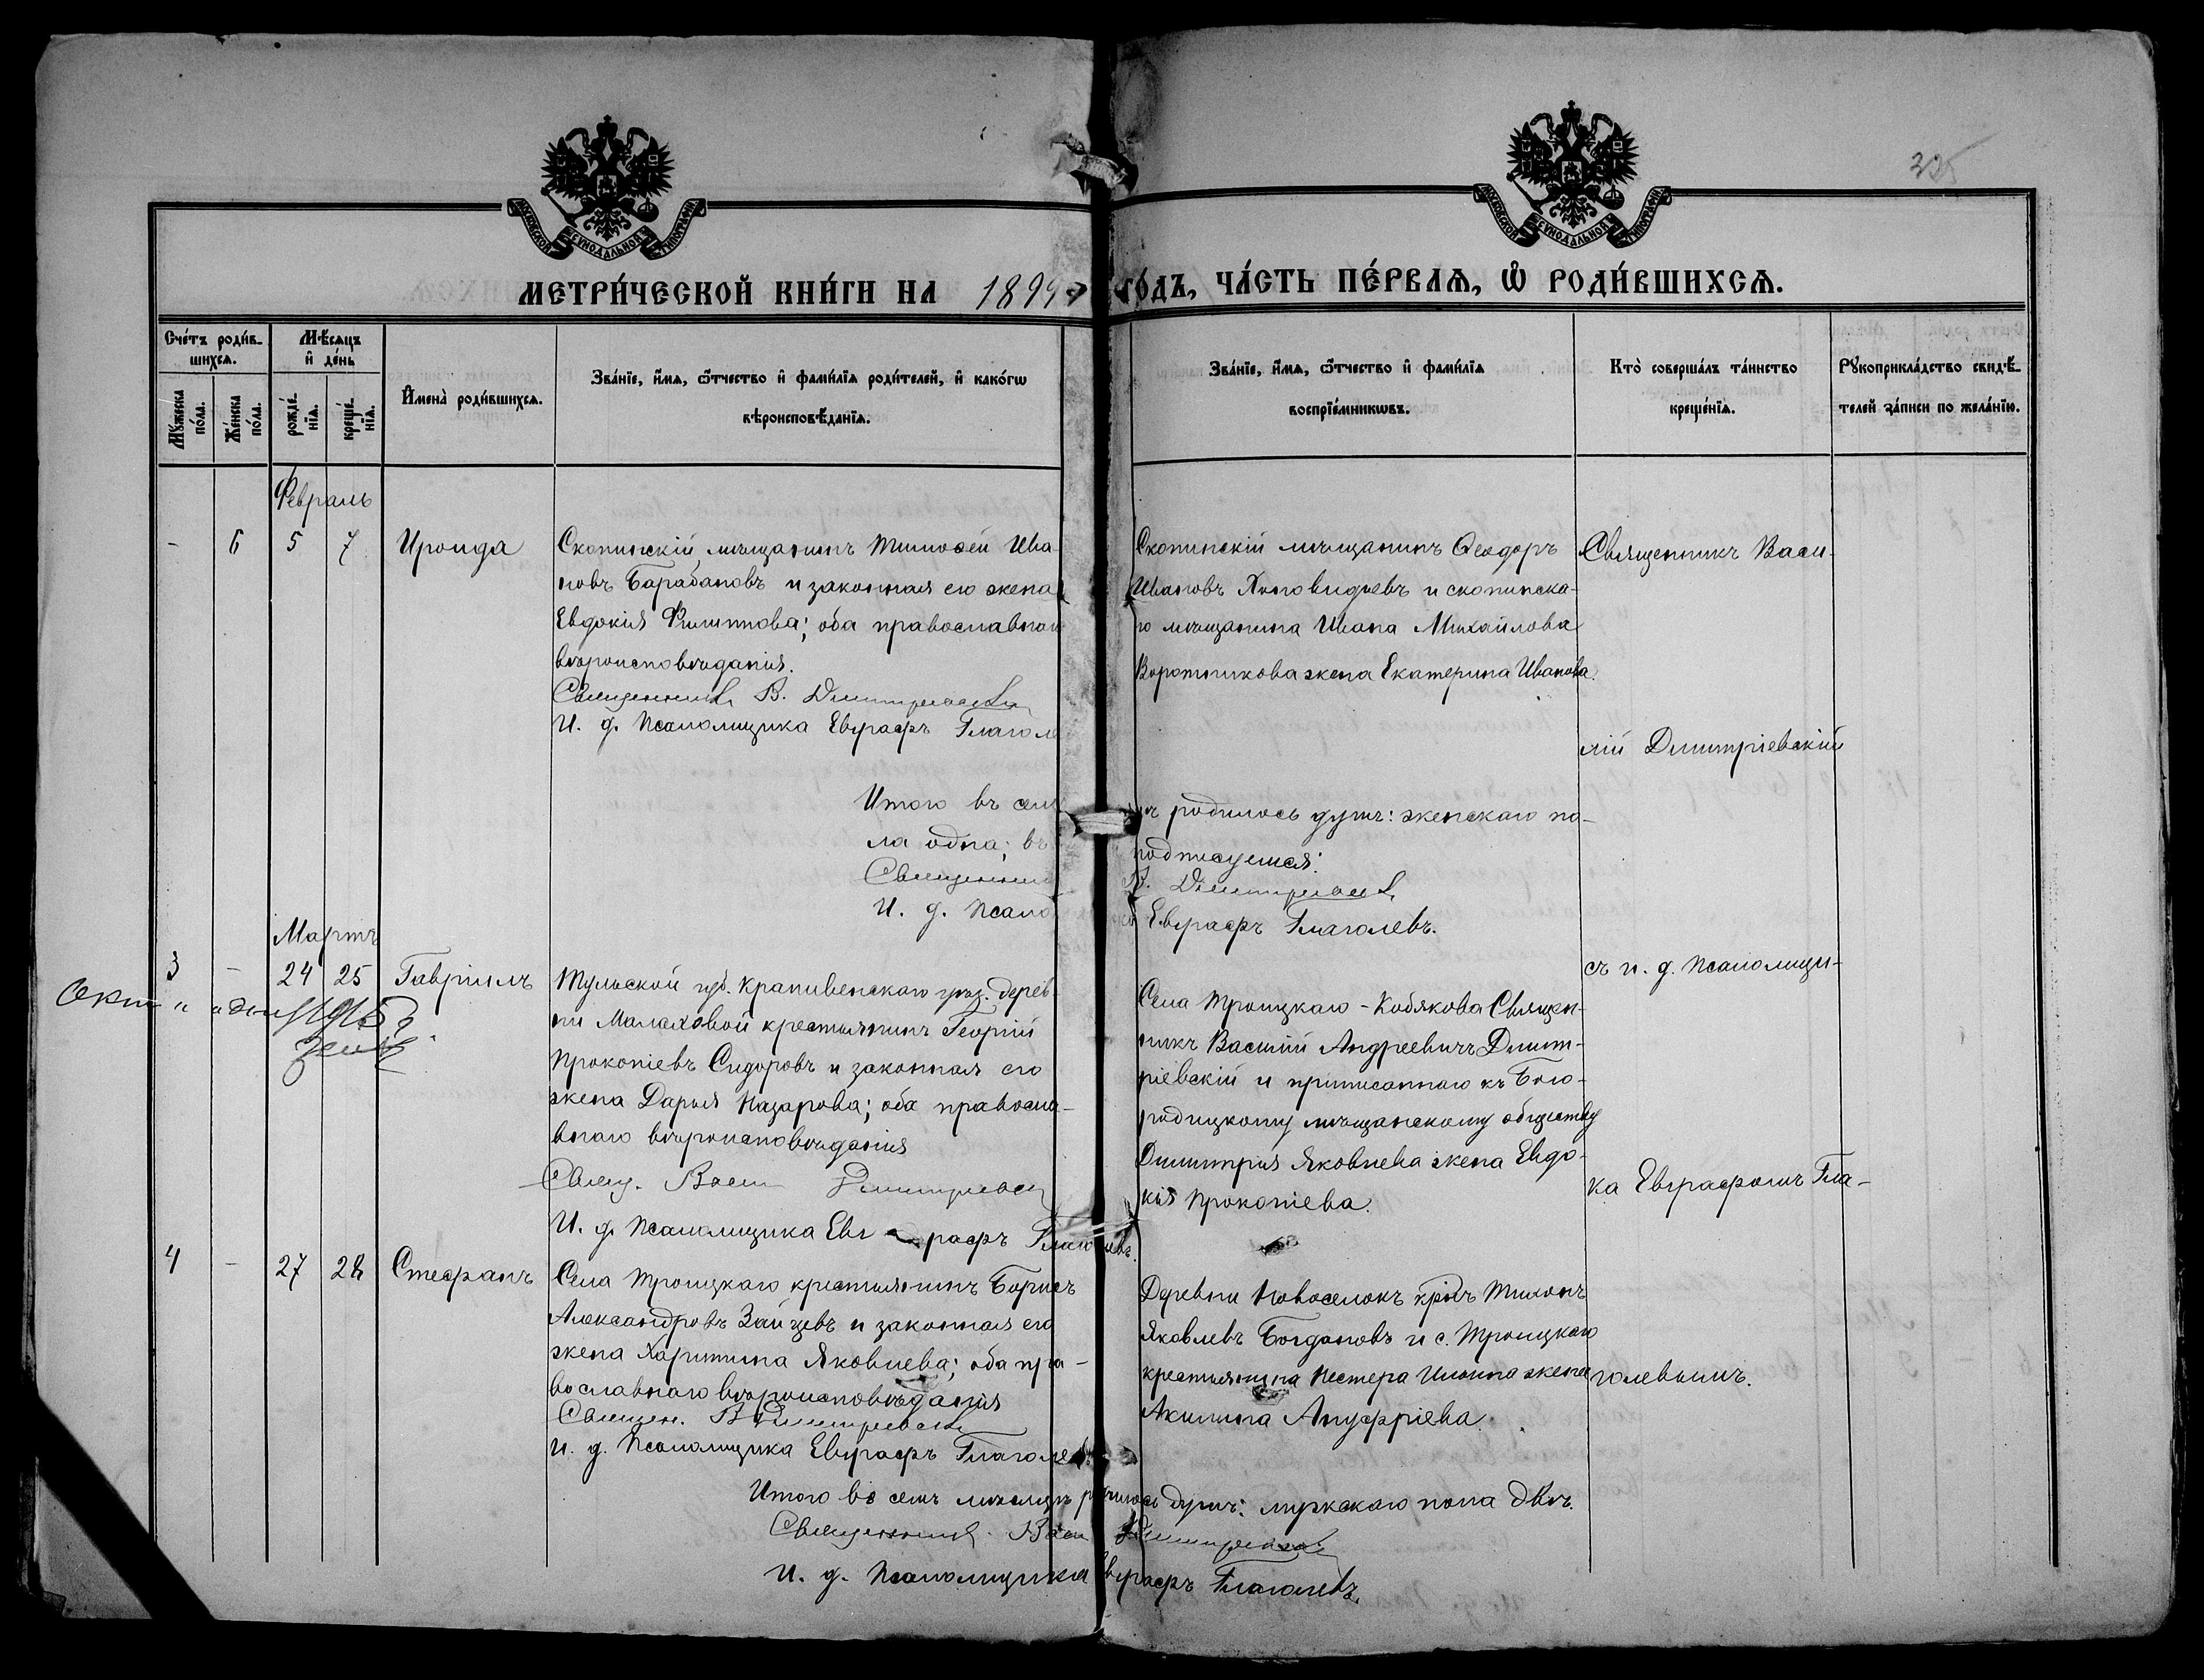 325
МОСКОВСКОЙ СУНОДАЛЬНОЙ ТИПОГРАФІИ
МОСКОВСКОЙ СУНОДАЛЬНОЙ ТИПОГРАФІИ
МЕТРИ́ЧЕСКОЙ КНИ́ГИ НА 1899 ГО́ДЪ, ЧА́СТЬ ПЕ́РВАѦ, Ѡ҆ РОДИ́ВШИХСѦ.
Сче́тъ роди́в-
шихсѧ.
Мꙋ́жеска по́ла.
Же́нска по́ла.
Мѣ́сѧцъ
и҆ де́нь
рожде́-
нїѧ.
креще́-
нїѧ.
И҆мена̀ роди́вшихсѧ.
Зва́нїе, и҆́мѧ, ѻ҆́тчество и҆ фами́лїѧ роди́телей, и҆ како́гѡ
вѣроисповѣ́данїѧ.
Зва́нїе, и҆́мѧ, ѻ҆́тчество и҆ фами́лїѧ
воспрїе́мникѡвъ.
Кто̀ соверша́лъ та́инство
креще́нїѧ.
Рꙋкоприкла́дство свидѣ́-
телей за́писи по жела́нїю.
Февраль
- 6 5 7 Ироида
Скопинскій мѣщанинъ Тимоѳей Ива-
новъ Барабановъ и законная его жена
Евдокія Филиппова; оба православнаго
вѣроисповѣданія.
Священникъ В. Димитріевскій
И. д. Псаломщика Евграфъ Глаголе
Скопинскій мѣщанинъ Ѳеодоръ
Ивановъ Хиповидьевъ и скопинска-
го мѣщанина Ивана Михайлова
Воротникова жена Екатерина Иванова.
Священникъ Васи-
лій Димитріевскій
съ и. д. Псаломщи-
ка Евграфомъ Гла-
голевымъ.
Итого въ семъ родилось душъ: женскаго по-
ла одна; въ подписуемся:
Священник В. Димитріевскій
И. д. Псало Евграфъ Глаголевъ.
Мартъ
3 - 24 25 Гавріилъ
1915 г.
Тульской губ. Крапивенскаго уѣз. дерев-
ни Малаховой крестьянинъ Георгій
Прокопіевъ Сидоровъ и законная его
жена Дарья Назарова; оба правосла-
внаго вѣроисповѣданія
Свящ. Васи Димитріевскій
И. д. Псаломщика Евграфъ Глаголевъ.
Села Троицкаго-Кобякова Священ-
никъ Василій Андреевичъ Димит-
ріевскій и приписаннаго къ Бого-
родицкому мѣщанскому обществу
Димитрія Яковлева жена Евдо-
кія Прокопіева.
4 - 27 28 Стефанъ
Села Троицкаго крестьянинъ Борисъ
Александровъ Зайцевъ и законная его
жена Харитина Яковлева; оба пра-
вославнаго вѣроисповѣданія
Священ. В Димитріевскій
И. д. Псаломщика Евграфъ Глаголев
Деревни Новоселокъ крнъ Тихонъ
Яковлевъ Богдановъ и с. Троицкаго
крестьянина Нестера Ильина жена
Акилина Ануфріева.
Итого въ семъ мѣсяцѣ родилось душъ: мужскаго пола двѣ.
Священникъ Васи Димитріевскій
И. д. Псаломщика Евграфъ Глаголевъ.